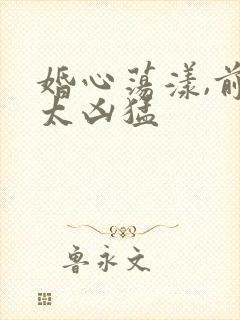 婚心荡漾,前
太凶猛
鲁永文